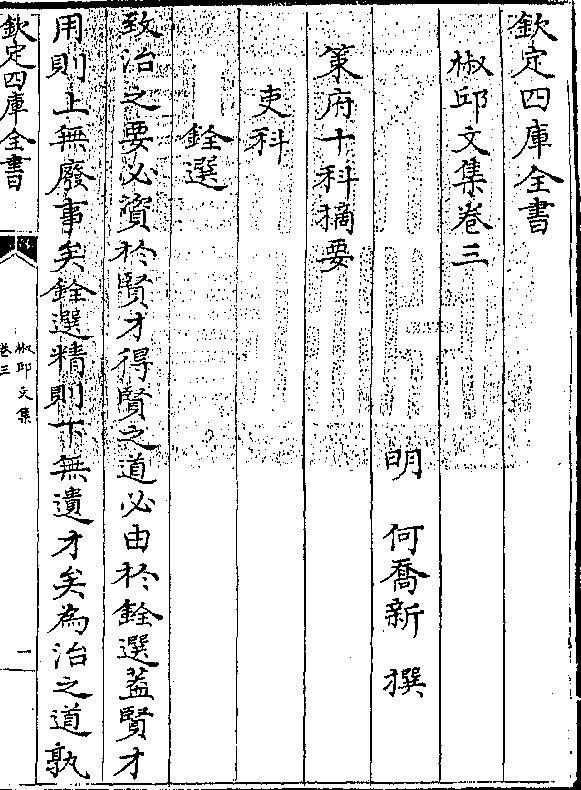 欽定四庫全書
椒邱文集卷三
明　何喬新　撰
策府十科摘要
吏科
銓選
致治之要必資於賢才得賢之道必由於銓選蓋賢才
用則上無廢事矣銓選精則下無遺才矣為治之道孰
欽定四庫全書
椒邱文集
卷三
一